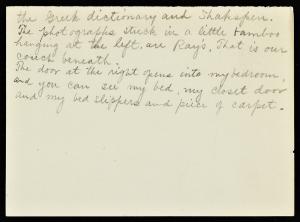 the Greek dictionary and Shakspere.
The photographs stuck in a little bamboo
hanging at the left, are Rays. That is our
couch beneath.
The door at the right opens into my bedroom,
and you can see my bed, my closet door
and my bed slippers and piece of carpet.